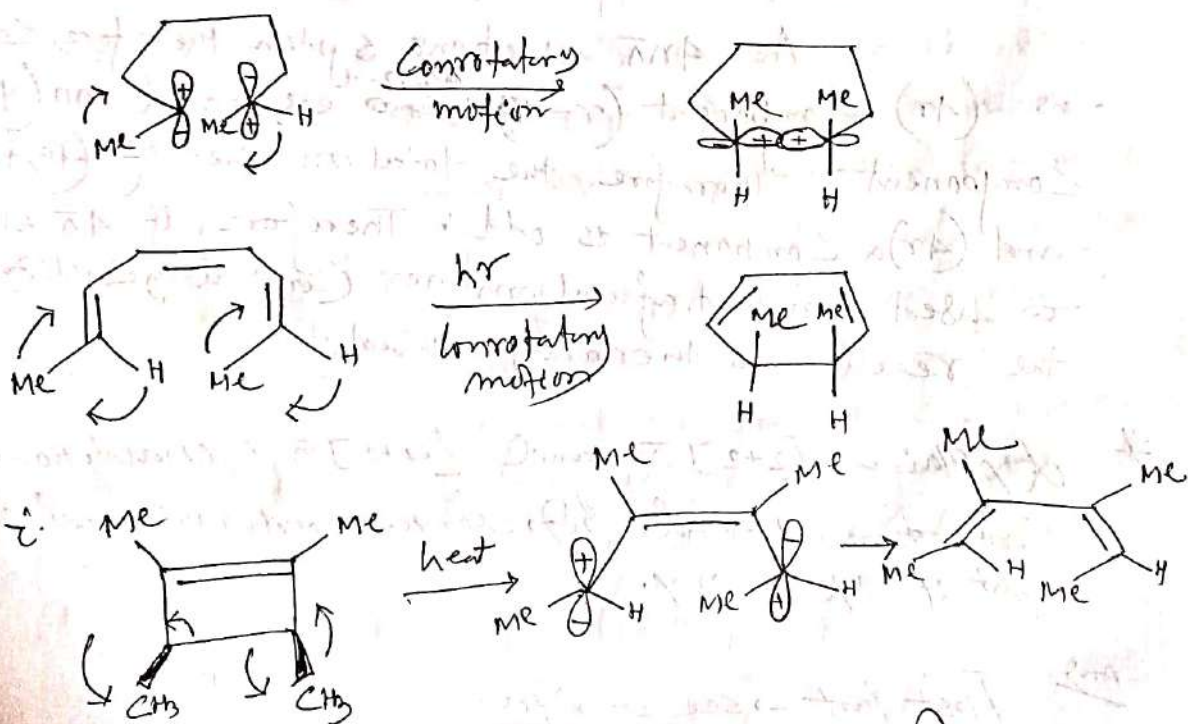 Me + − − + Me H
Conrotatary
motion
Me Me
+ +
H H
Me H Me H
hr
Conrotatary
motion
Me Me
H H
i.
Me Me
CH3 CH3
heat
Me Me
+ − − +
Me H Me H
Me Me
Me H Me H